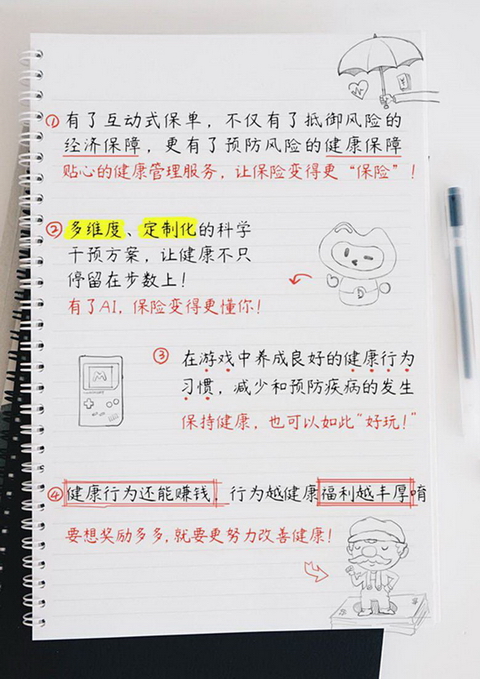 ① 有了互动式保单，不仅有了抵御风险的
经济保障，更有了预防风险的健康保障
贴心的健康管理服务，让保险变得更“保险”！
② 多维度、定制化的科学
干预方案，让健康不只
停留在步数上！
有了AI，保险变得更懂你！
③ 在游戏中养成良好的健康行为
习惯，减少和预防疾病的发生
保持健康，也可以如此“好玩！”
④ 健康行为还能赚钱，行为越健康福利越丰厚唷
要想奖励多多,就要更努力改善健康！